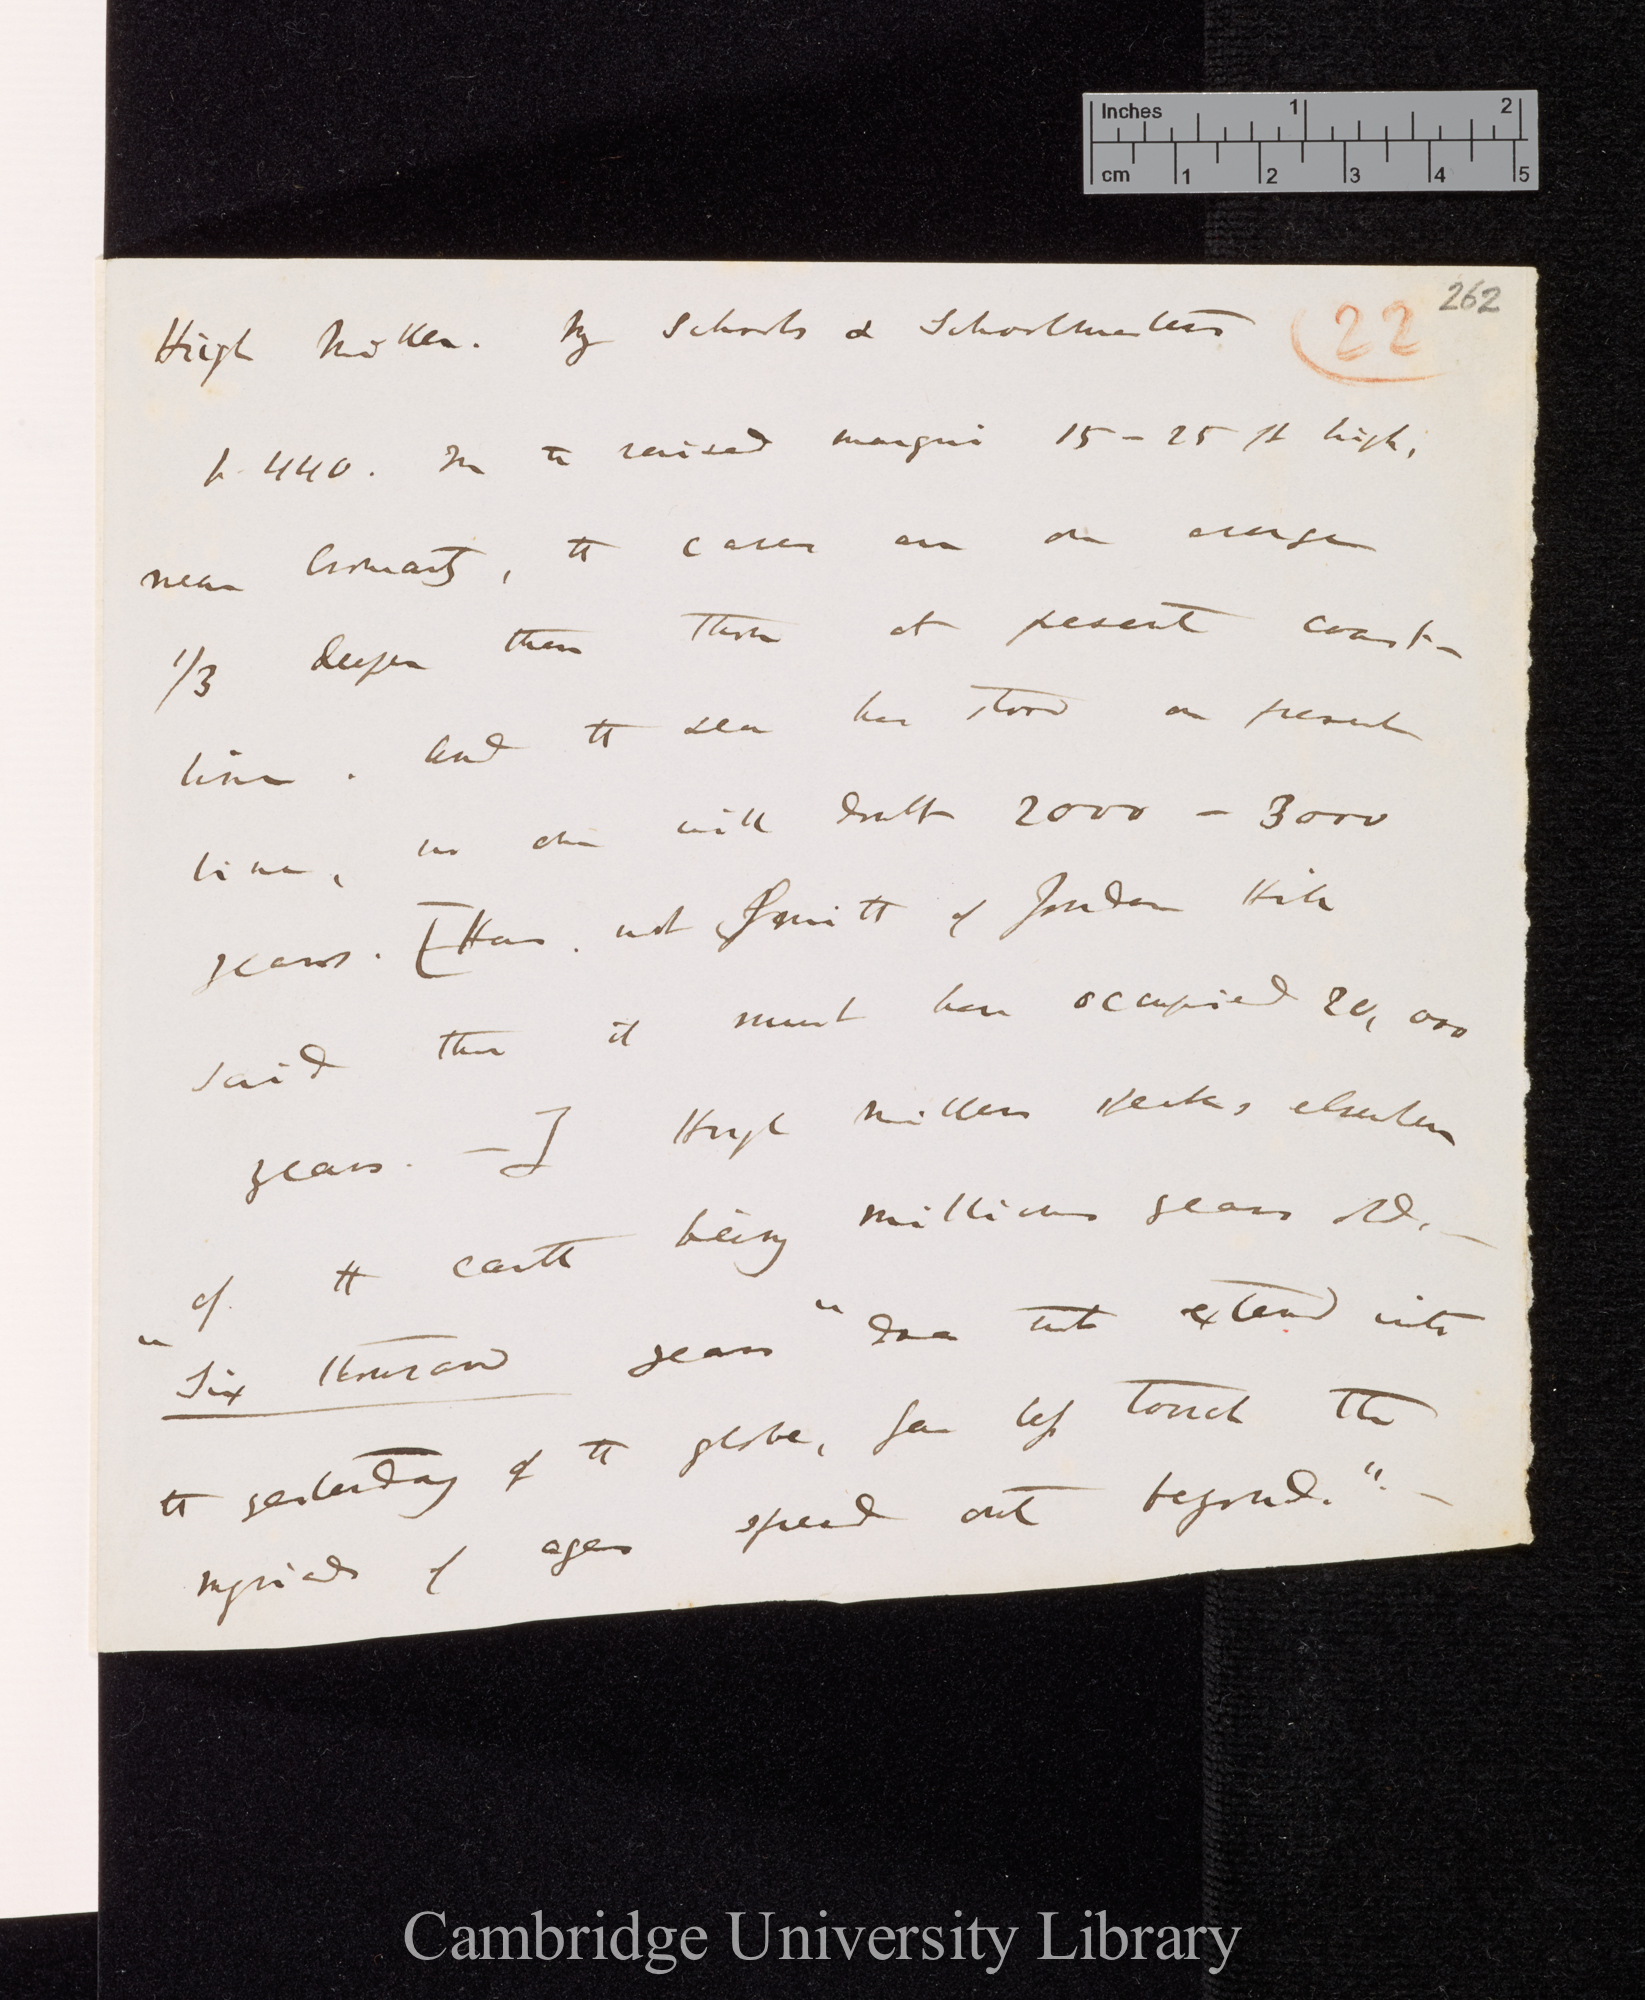 Inches 1 2
cm 1 2 3 4 5
262
22
Hugh Miller. My Schools & Schoolmasters
p. 440. In the raised margin 15–25 ft high,
near Cromarty, the caves are on average
1/3 deeper than those at present coast-
line. And the sea has stood on present
line, no one will doubt 2000 – 3000
years. [Has not Smith of Jordan Hill
said that it must have occupied 20,000
years. —] Hugh Miller speaks elsewhere
of the earth being millions years old. —
"Six thousand years" does not extend into
the yesterday of the globe, far less touch the
myriads of ages spread out beyond." —
Cambridge University Library